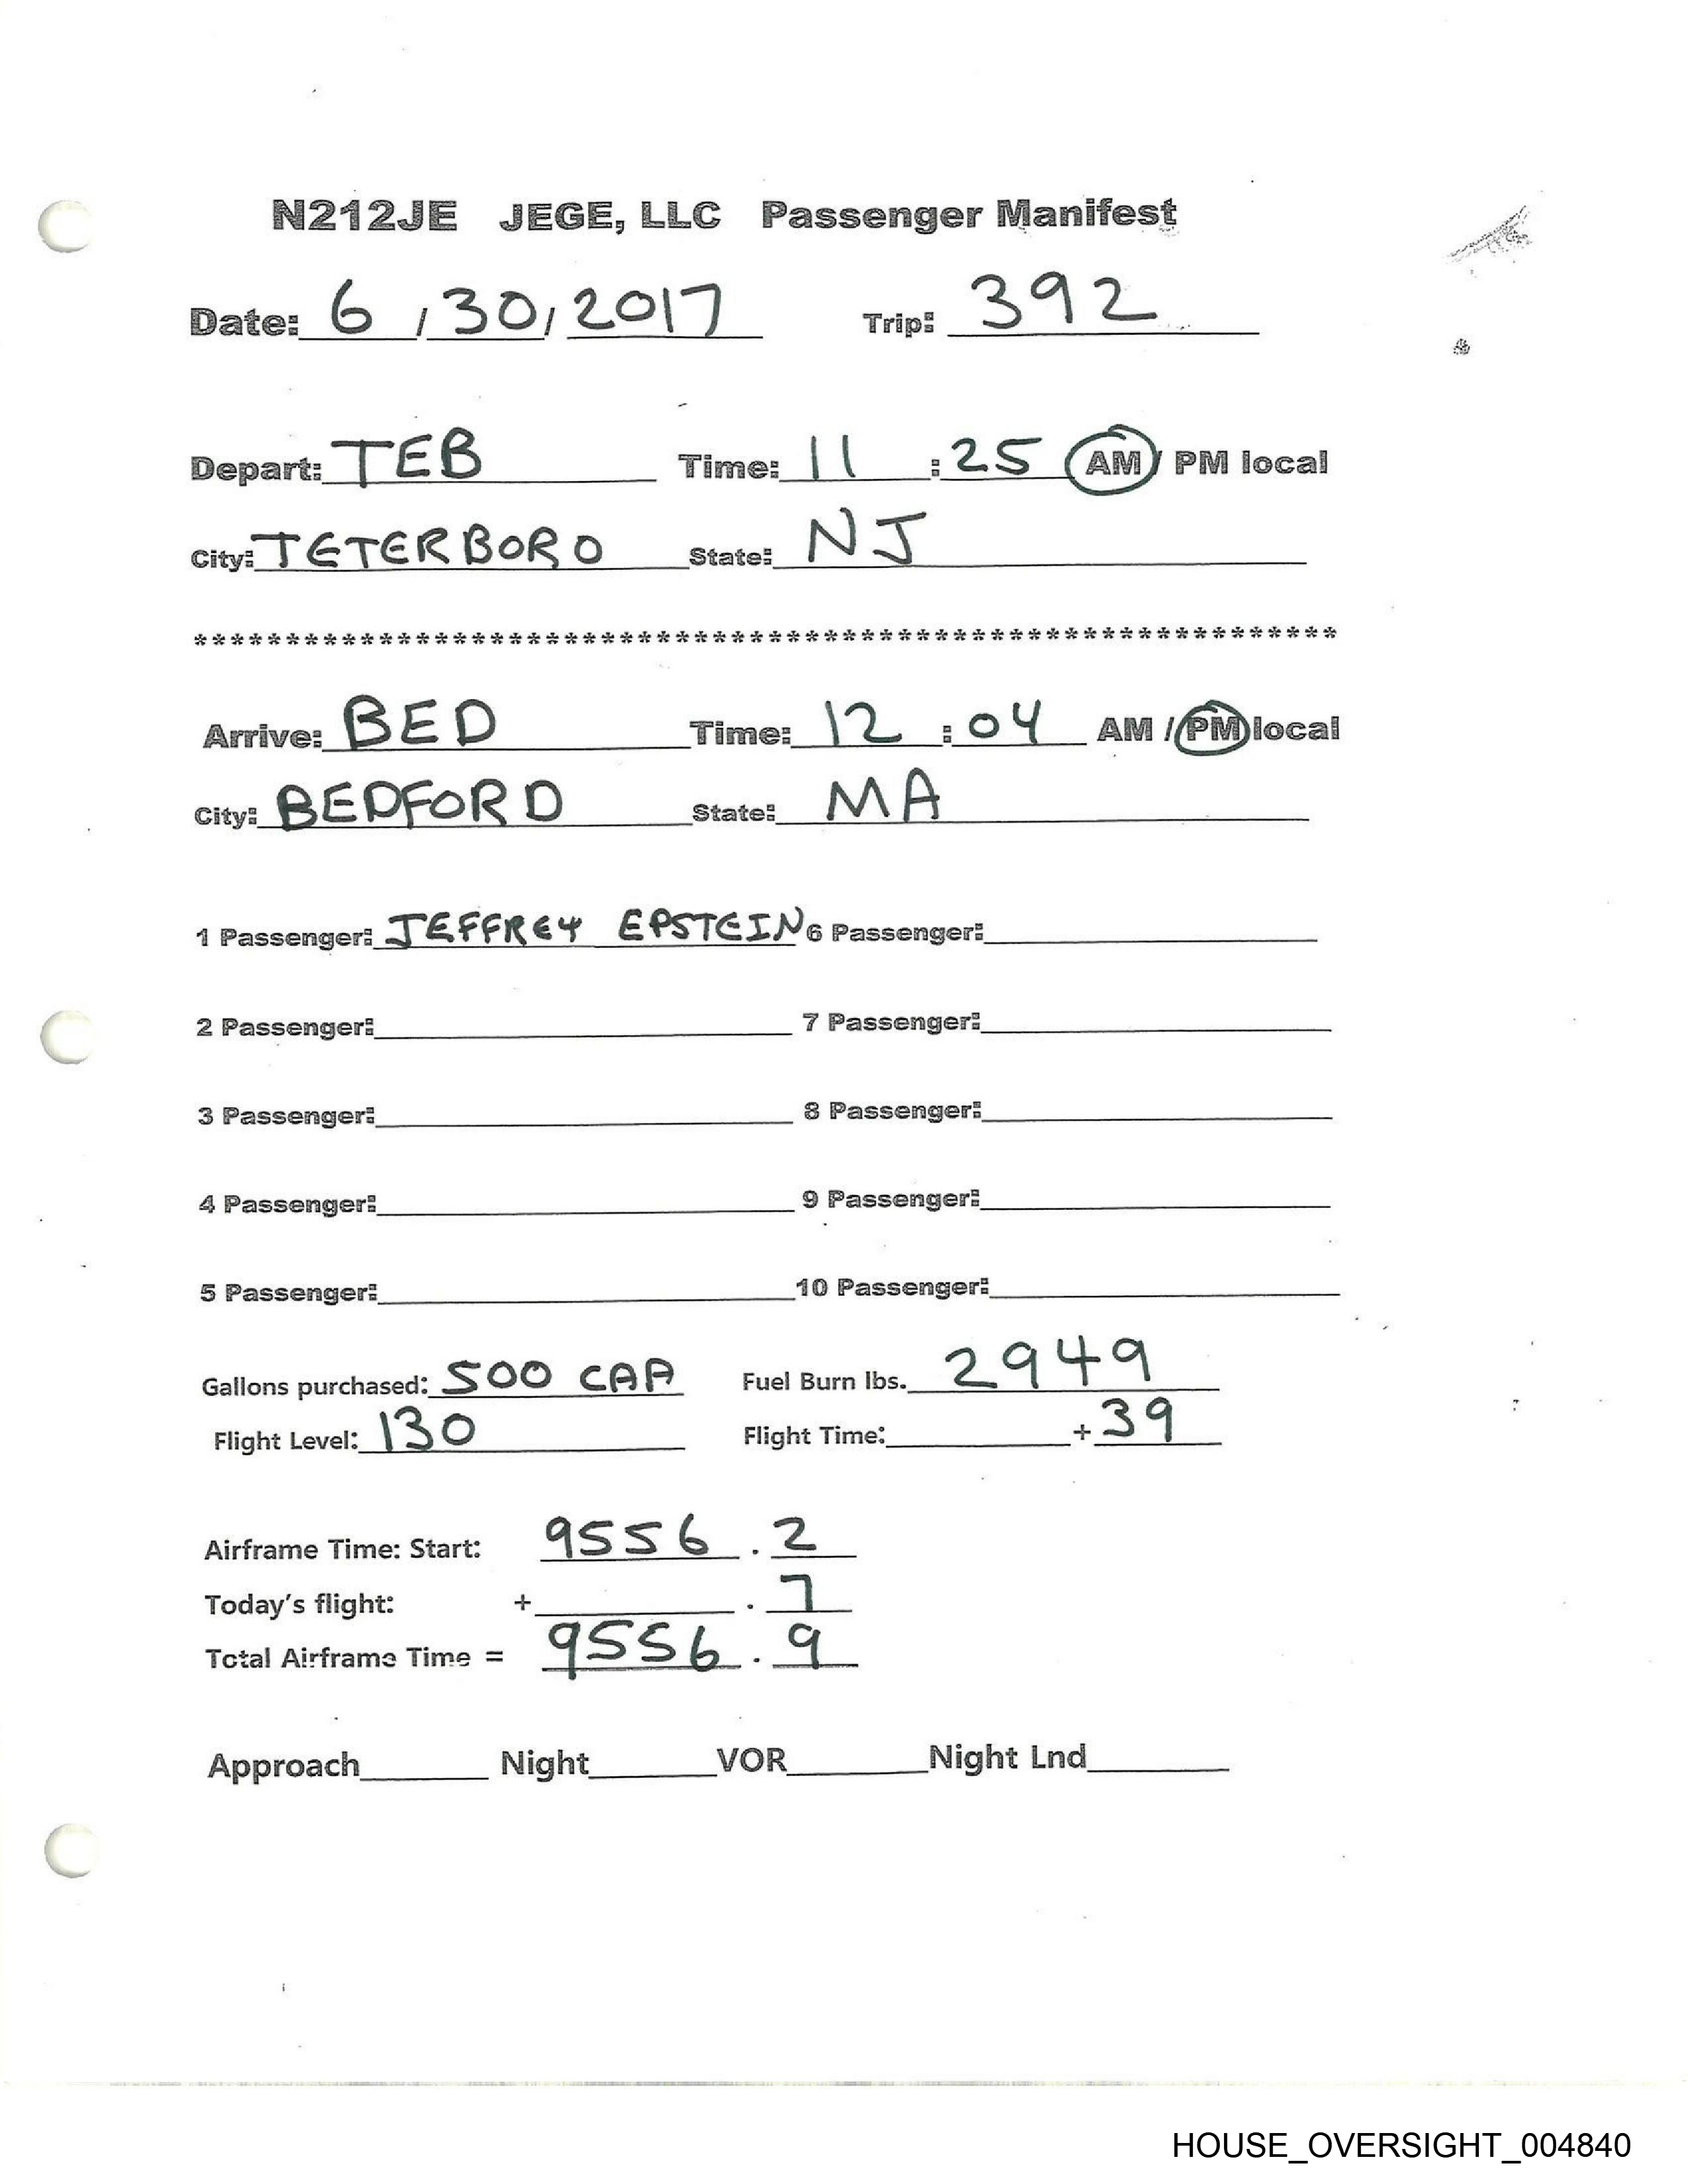 N212JE JEGE, LLC Passenger Manifest
Date: 6 / 30 / 2017 Trip: 392
Depart: TEB Time: 11 : 25 AM / PM local
City: TETERBORO State: NJ
**************************************************************
Arrive: BED Time: 12 : 04 AM / PM local
City: BEDFORD State: MA
1 Passenger: JEFFREY EPSTEIN 6 Passenger:
2 Passenger: 7 Passenger:
3 Passenger: 8 Passenger:
4 Passenger: 9 Passenger:
5 Passenger: 10 Passenger:
Gallons purchased: 500 CAA Fuel Burn lbs. 2949
Flight Level: 130 Flight Time: + 39
Airframe Time: Start: 9556 . 2
Today's flight: + . 7
Total Airframe Time = 9556 . 9
Approach Night VOR Night Lnd
HOUSE_OVERSIGHT_004840